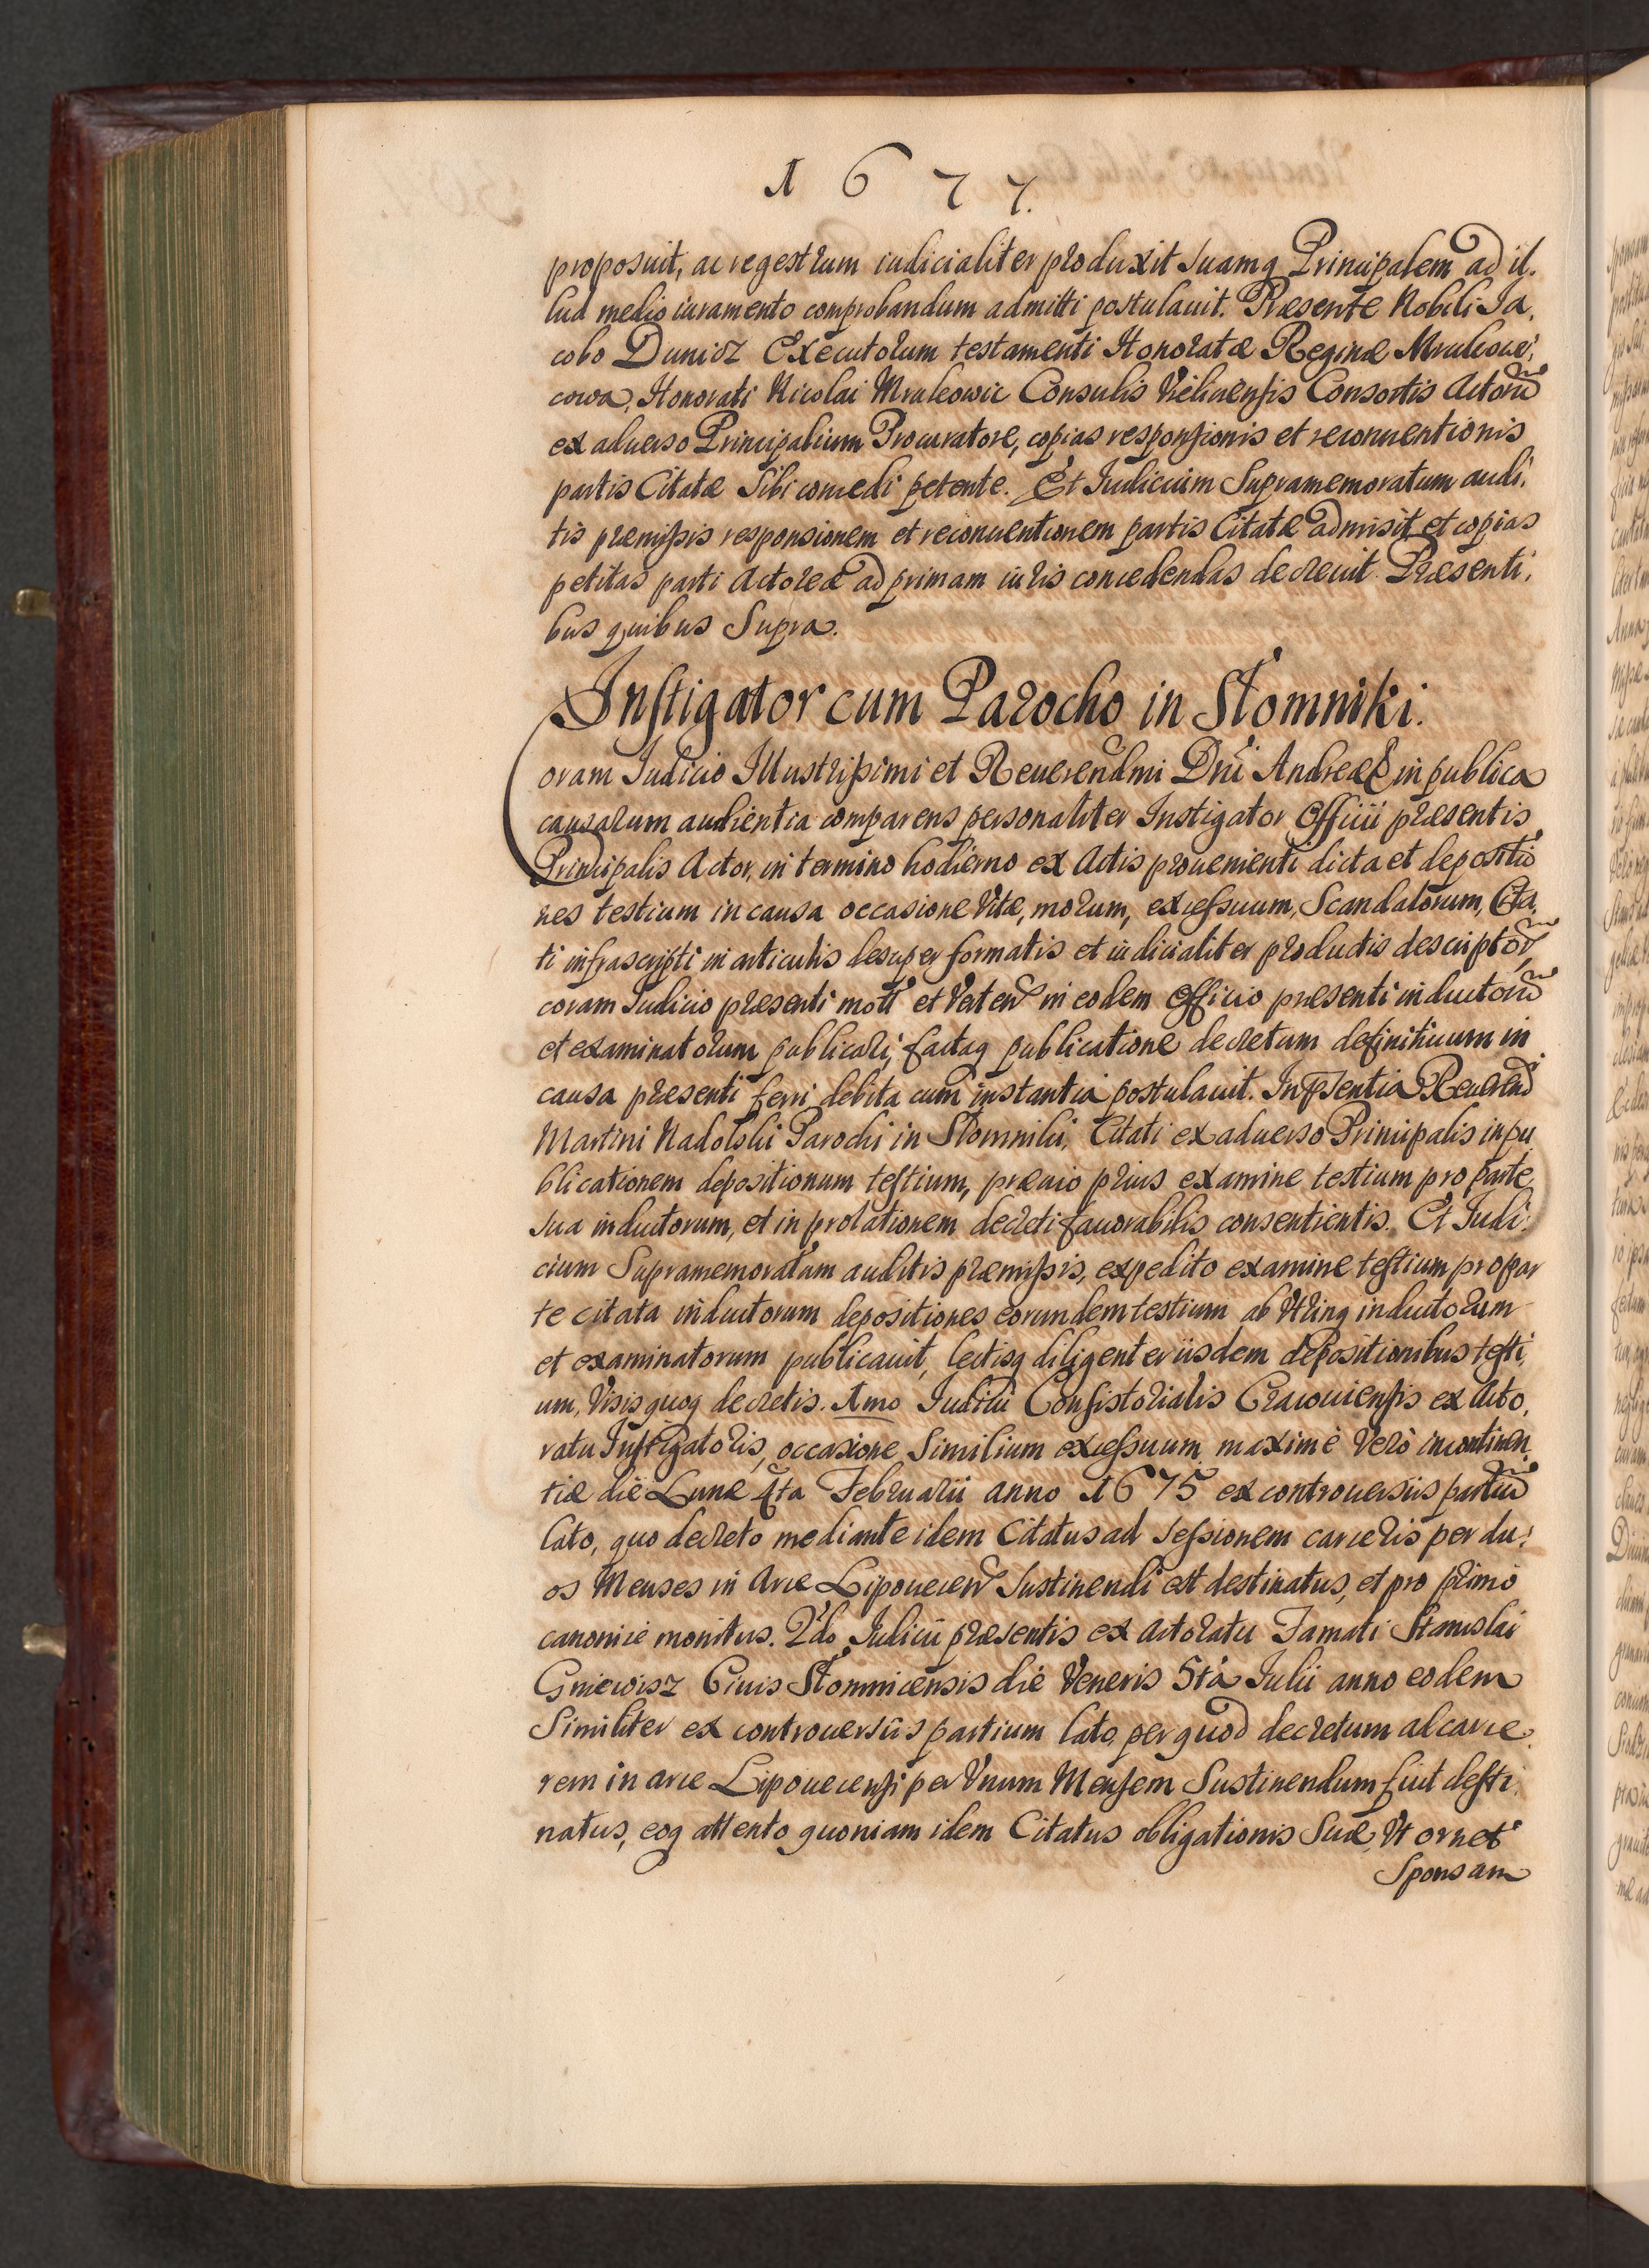 1677.
proposuit, ac regestrum iudicialiter produxit suamq Principalem ad il.
lud medio iuramento comprobandum admitti postulauit. Præsente Nobili Ia,
cobo Dunicz Executorum testamenti Honoratæ Reginæ
cowa, Honorati Nicolai Consulis Vielicensis Consortis Actorũ
ex aduerso Principalium Procuratore, copias responsionis et reconuentionis
partis Citatæ Sibi concedi petente. Et Iudicium Supramemoratum audi,
tis præmissis responsionem et reconuentionem partis Citatæ admisit et copias
petitas parti Actoreæ ad primam iuris concedendas decreuit. Præsenti,
bus quibus Supra.
Instigator cum Parocho in Słomniki.
Coram Iudicio Illustrissimi et Reuerendmi Dni Andreæ &c in publica
causarum audientia comparens personaliter Instigator Officii præsentis
Principalis Actor, in termino hodierno ex Actis prouenienti dicta et depositio
nes testium in causa occasione Vitæ, morum, excessuum, Scandalorum, Cita,
ti infrascripti in articulis desuper formatis et iudicialiter productis descriptor,
coram Iudicio præsenti mott et Verten in eodem Officio præsenti inductorũ
et examinatorum publicari, factaq publicatione decretum definitiuum in
causa præsenti ferri debita cum instantia postulauit. In Psentia Reuerend
Martini Nadolski Parochi in Słomniki, Citati ex aduerso Principalis in pu
blicationem depositionum testium, præuio prius examine testium pro parte
sua inductorum, et in prolationem decreti fauorabilis consentientis. Et Iudi:
cium Supramemoratum auditis præmissis, expedito examine testium pro par
te citata inductorum depositiones eorundem testium ab Vtrinq inductorum
et examinatorum publicauit, lectisq diligenter iisdem depositionibus testi,
um, Visis quoq decretis. Imo Iudicii Consistorialis Cracouiensis ex Acto,
ratu Instigatoris, occasione Similium excessuum maximè Verò incontinen
tiæ die Lunæ 4ta Februarii anno 1675 ex controuersiis partiũ
lato, quo decreto mediante idem Citatus ad sessionem carceris per du:
os Menses in Arce Lipouecen Sustinendi est destinatus, et pro primo
canonice monitus. 2do Iudicii præsentis ex Actoratu Famati Stanislai
Gniewisz Ciuis Słomnicensis die Veneris 5ta Iulii anno eodem
Similiter ex controuersiis partium lato, per quod decretum ad carce,
rem in arce Lipouecensi per Vnum Mensem Sustinendum fuit desti,
natus, eoq attento quoniam idem Citatus obligationis Suæ, Vt ornet
Sponsam